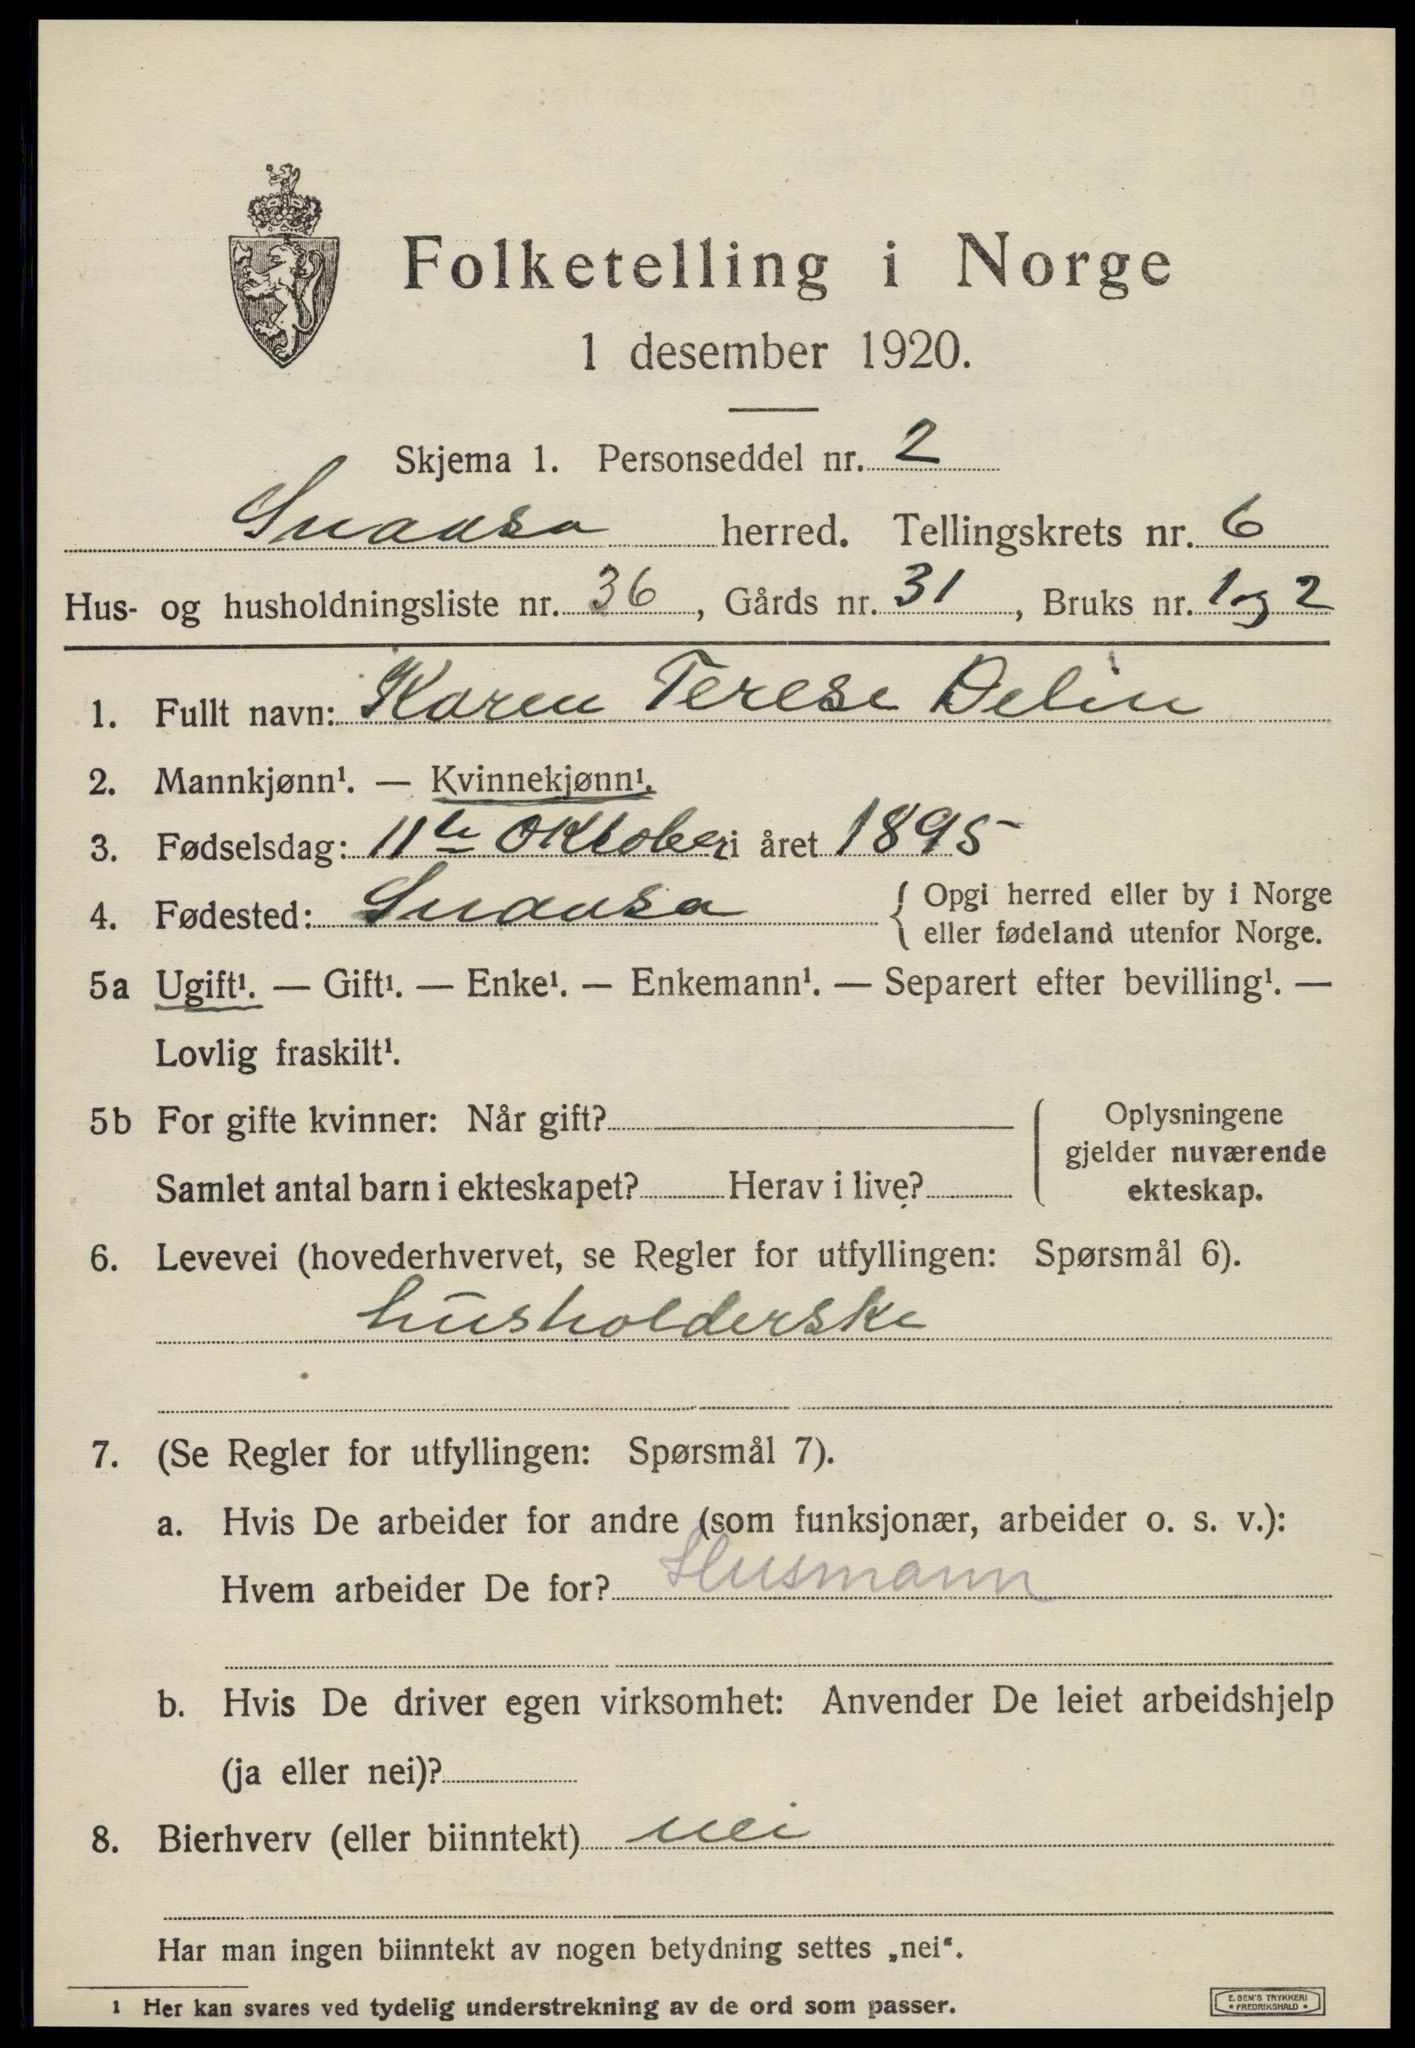 Folketelling i Norge
1 desember 1920.
Skjema 1. Personseddel nr. 2
Snaasa herred. Tellingskrets nr. 6
Hus- og husholdningsliste nr. 36, Gårds nr. 31, Bruks nr. 1 og 2
1. Fullt navn: Karen Terese Delin
2. Mannkjønn¹. — Kvinnekjønn¹.
3. Fødselsdag: 11te Oktober i året 1895
4. Fødested: Snaasa { Opgi herred eller by i Norge
eller fødeland utenfor Norge.
5a Ugift¹. — Gift¹. — Enke¹. — Enkemann¹. — Separert efter bevilling¹. —
Lovlig fraskilt¹.
5b For gifte kvinner: Når gift?
Samlet antal barn i ekteskapet? Herav i live?
Oplysningene
gjelder nuværende
ekteskap.
6. Levevei (hovederhvervet, se Regler for utfyllingen: Spørsmål 6).
husholderske
7. (Se Regler for utfyllingen: Spørsmål 7).
a. Hvis De arbeider for andre (som funksjonær, arbeider o. s. v.):
Hvem arbeider De for? Husmann
b. Hvis De driver egen virksomhet: Anvender De leiet arbeidshjelp
(ja eller nei)?
8. Bierhverv (eller biinntekt) nei
Har man ingen biinntekt av nogen betydning settes „nei“.
1 Her kan svares ved tydelig understrekning av de ord som passer.
E. SEM'S TRYKKERI
• FREDRIKSHALD •